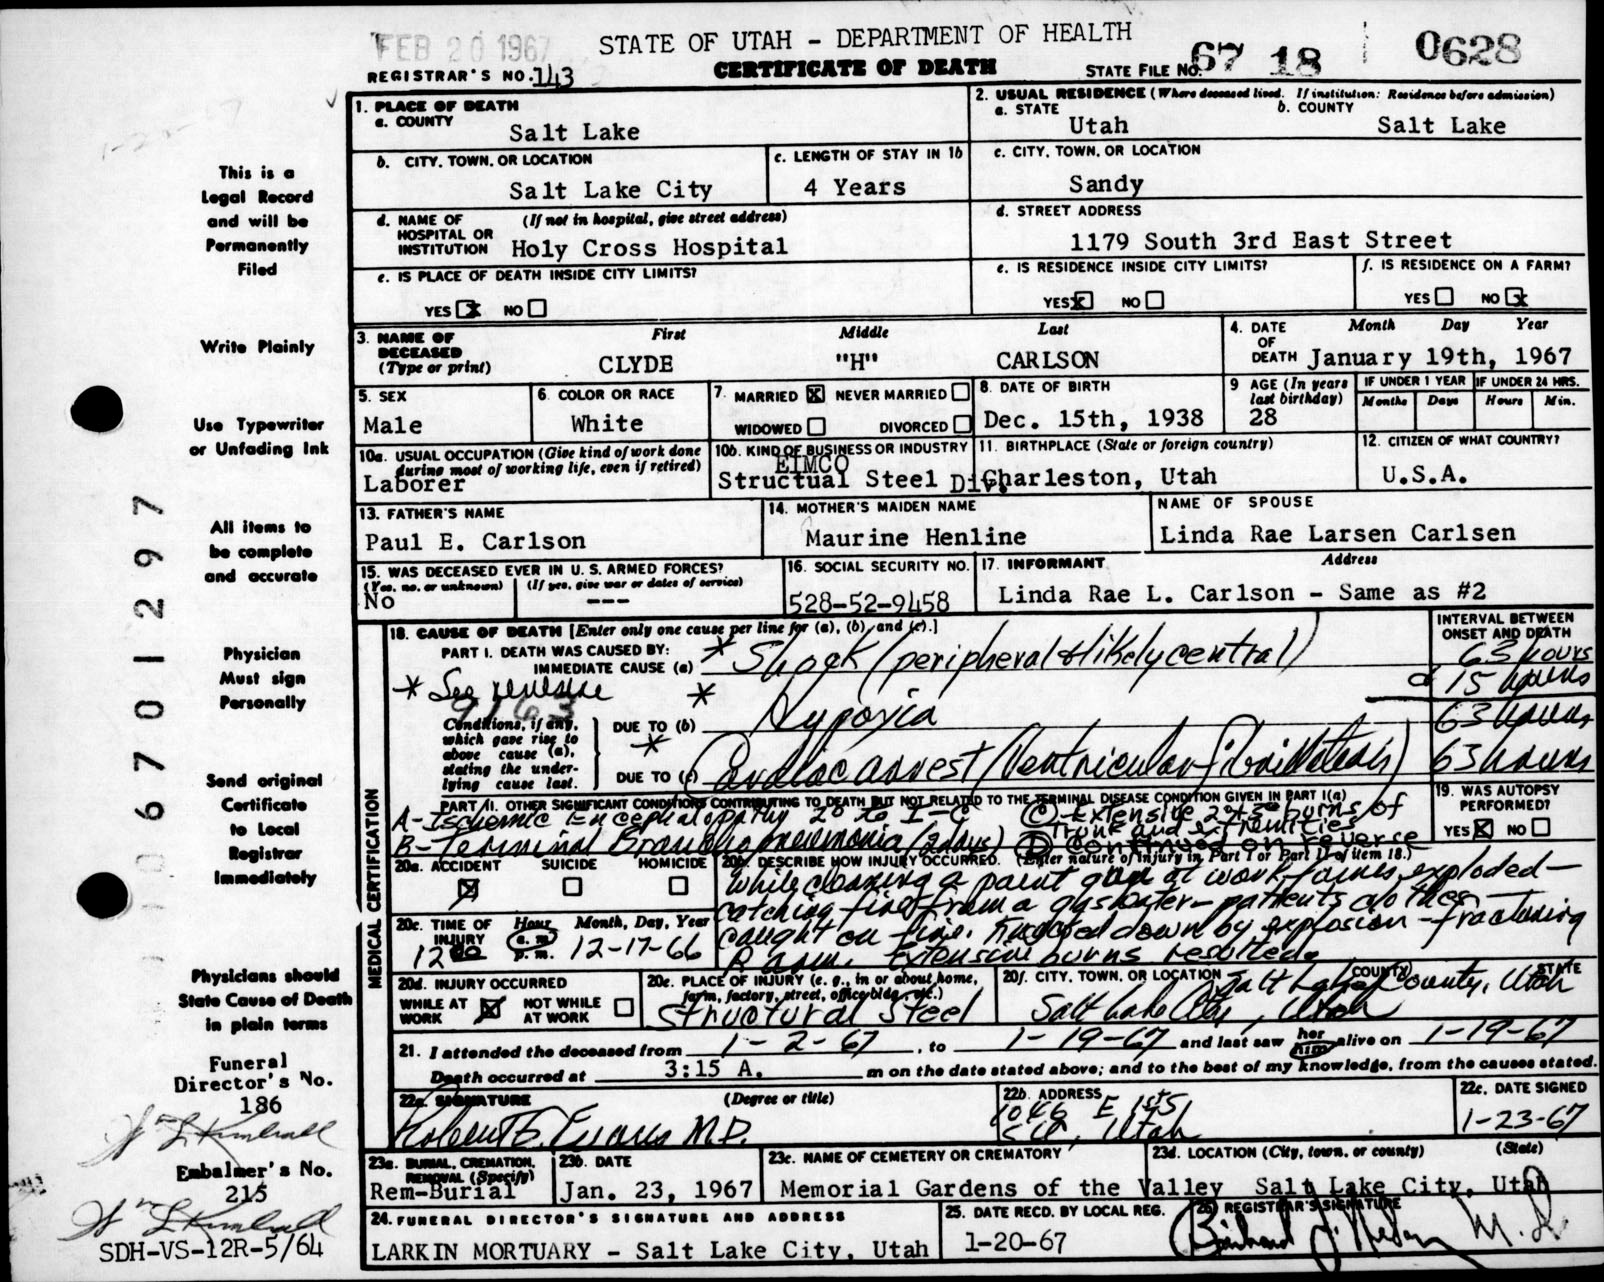 FEB 20 1967
STATE OF UTAH - DEPARTMENT OF HEALTH
CERTIFICATE OF DEATH
REGISTRAR'S NO. 143
STATE FILE NO. 67 18 0628
This is a
Legal Record
and will be
Permanently
Filed
Write Plainly
Use Typewriter
or Unfading Ink
All items to
be complete
and accurate
Physician
Must sign
Personally
Send original
Certificate
to Local
Registrar
Immediately
Physicians should
State Cause of Death
in plain terms
Funeral
Director's No.
186
Wm L Kimball
Embalmer's No.
215
Wm L Kimball
SDH-VS-12R-5/64
0 6 7 0 1 2 9 7
1. PLACE OF DEATH
a. COUNTY
Salt Lake
2. USUAL RESIDENCE (Where deceased lived. If institution: Residence before admission)
a. STATE b. COUNTY
Utah Salt Lake
b. CITY, TOWN, OR LOCATION
Salt Lake City
c. LENGTH OF STAY IN 1b
4 Years
c. CITY, TOWN, OR LOCATION
Sandy
d. NAME OF HOSPITAL OR INSTITUTION (If not in hospital, give street address)
Holy Cross Hospital
d. STREET ADDRESS
1179 South 3rd East Street
e. IS PLACE OF DEATH INSIDE CITY LIMITS?
YES X NO
e. IS RESIDENCE INSIDE CITY LIMITS?
YES X NO
f. IS RESIDENCE ON A FARM?
YES NO X
3. NAME OF DECEASED (Type or print)
First Middle Last
CLYDE "H" CARLSON
4. DATE OF DEATH
Month Day Year
January 19th, 1967
5. SEX
Male
6. COLOR OR RACE
White
7. MARRIED X NEVER MARRIED
WIDOWED DIVORCED
8. DATE OF BIRTH
Dec. 15th, 1938
9 AGE (In years last birthday)
28
IF UNDER 1 YEAR IF UNDER 24 HRS.
Months Days Hours Min.
10a. USUAL OCCUPATION (Give kind of work done during most of working life, even if retired)
Laborer
10b. KIND OF BUSINESS OR INDUSTRY
EIMCO
Structual Steel Div.
11. BIRTHPLACE (State or foreign country)
Charleston, Utah
12. CITIZEN OF WHAT COUNTRY?
U.S.A.
13. FATHER'S NAME
Paul E. Carlson
14. MOTHER'S MAIDEN NAME
Maurine Henline
NAME OF SPOUSE
Linda Rae Larsen Carlsen
15. WAS DECEASED EVER IN U. S. ARMED FORCES?
(Yes, no, or unknown) (If yes, give war or dates of service)
No ---
16. SOCIAL SECURITY NO.
528-52-9458
17. INFORMANT Address
Linda Rae L. Carlson - Same as #2
MEDICAL CERTIFICATION
18. CAUSE OF DEATH [Enter only one cause per line for (a), (b), and (c).]
INTERVAL BETWEEN ONSET AND DEATH
PART I. DEATH WAS CAUSED BY:
IMMEDIATE CAUSE (a)
* Shock (peripheral & likely central)
63 hours
15 hours
* See reverse
9163
Conditions, if any, which gave rise to above cause (a), stating the underlying cause last.
DUE TO (b)
* Hypoxia
63 hours
DUE TO (c)
* Cardiac arrest (Ventricular fibrillation)
63 hours
PART II. OTHER SIGNIFICANT CONDITIONS CONTRIBUTING TO DEATH BUT NOT RELATED TO THE TERMINAL DISEASE CONDITION GIVEN IN PART I(a)
A- Ischemic Encephalopathy 2° to I-C
C- Extensive 2° & 3° burns of
Trunk and extremities
B- Terminal Bronchopneumonia (2 days)
D Continued on reverse
19. WAS AUTOPSY PERFORMED?
YES X NO
20a. ACCIDENT SUICIDE HOMICIDE
X
20b. DESCRIBE HOW INJURY OCCURRED. (Enter nature of injury in Part I or Part II of item 18.)
While cleaning a paint gun at work, fumes exploded-
catching fire from a gas heater- patients clothes
caught on fire. Knocked down by explosion - fracturing
R arm. Extensive burns resulted.
20c. TIME OF INJURY Hour Month, Day, Year
12 00 a. m. p. m. 12-17-66
20d. INJURY OCCURRED
WHILE AT WORK X NOT WHILE AT WORK
20e. PLACE OF INJURY (e. g., in or about home, farm, factory, street, office bldg., etc.)
Structural Steel
20f. CITY, TOWN, OR LOCATION COUNTY STATE
Salt Lake County, Utah
Salt Lake City, Utah
21. I attended the deceased from 1-2-67, to 1-19-67 and last saw her him alive on 1-19-67
Death occurred at 3:15 A. m on the date stated above; and to the best of my knowledge, from the causes stated.
22a. SIGNATURE (Degree or title)
Robert E. Evans M.D.
22b. ADDRESS
1046 E 1st S
SLC, Utah
22c. DATE SIGNED
1-23-67
23a. BURIAL, CREMATION, REMOVAL (Specify)
Rem-Burial
23b. DATE
Jan. 23, 1967
23c. NAME OF CEMETERY OR CREMATORY
Memorial Gardens of the Valley
23d. LOCATION (City, town, or county) (State)
Salt Lake City, Utah
24. FUNERAL DIRECTOR'S SIGNATURE AND ADDRESS
LARKIN MORTUARY - Salt Lake City, Utah
25. DATE RECD. BY LOCAL REG.
1-20-67
26 REGISTRAR'S SIGNATURE
M.D.